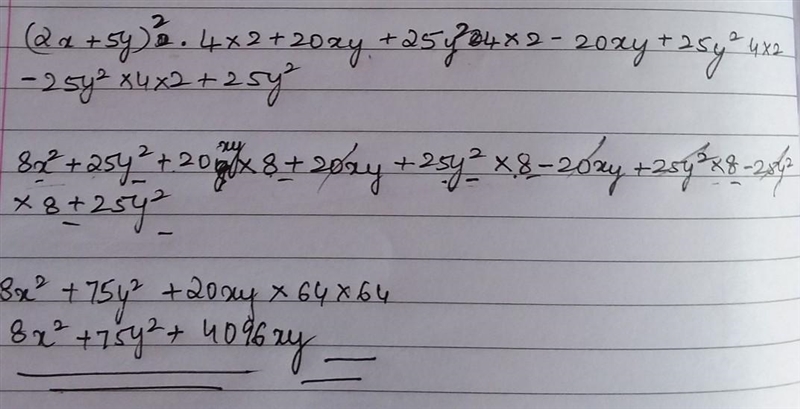 (2x + 5y)². 4×2 + 20xy + 25y² 4×2 - 20xy + 25y² 4×2
- 25y² × 4×2 + 25y²
8x² + 25y² + 20xy × 8 + 20xy + 25y² × 8 - 20xy + 25y² × 8 - 25y²
× 8 + 25y²
8x² + 75y² + 20xy × 64 × 64
8x² + 75y² + 4096xy